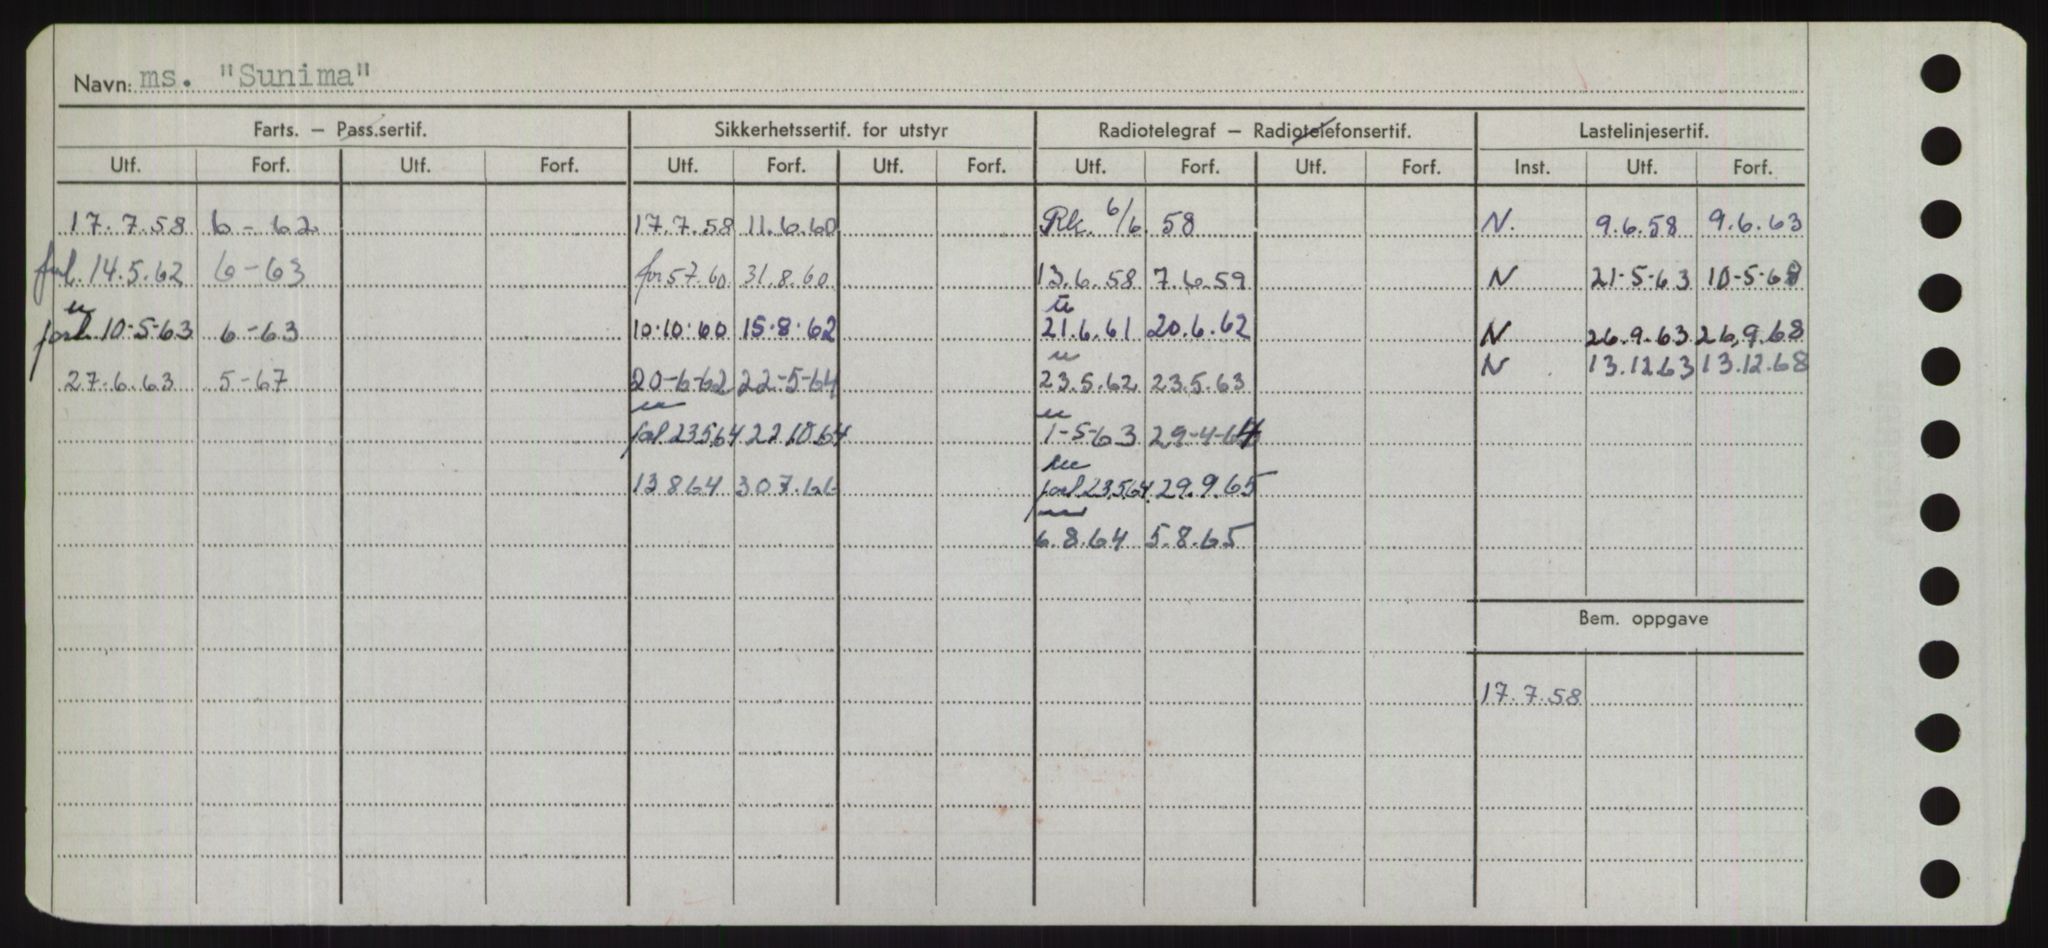 Navn: ms. "Sunima"
Farts. – Pass.sertif. Sikkerhetssertif. for utstyr Radiotelegraf – Radiotelefonsertif. Lastelinjesertif.
Utf. Forf. Utf. Forf. Utf. Forf. Utf. Forf. Utf. Forf. Utf. Forf. Inst. Utf. Forf.
17.7.58 6-62 17.7.58 11.6.60 Rk. 6/6 58 N. 9.6.58 9.6.63
14.5.62 6-63 31.8.60 13.6.58 7.6.59 N 21-5-63
10-5-63 6-63 10.10.60 15.8.62 21.6.61 20.6.62 N 26.9.63 26.9.68
N 13.12.63 13.12.68
27.6.63 5-67 20-6-62 22-5-64 23.5.62 23.5.63
forl 23.5.64 22.10.64 1-5-63 29-4-64
13.8.64 30.7.66 forl. 23.5.64 29.9.65
6.8.64 5.8.65
Bem. oppgave
17.7.58